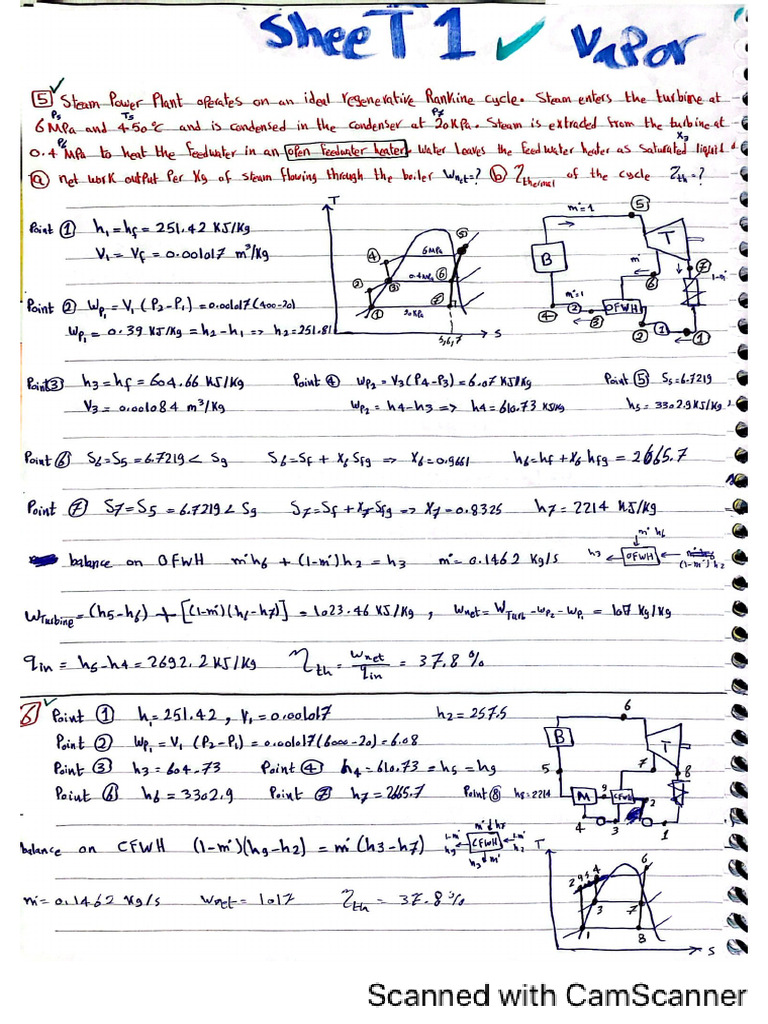 SheeT 1 ✓ Vapor
5 Steam Power Plant operates on an ideal regenerative Rankine cycle. Steam enters the turbine at
P5 T5 P7
6 MPa and 450°C and is condensed in the condenser at 20 KPa. Steam is extracted from the turbine at
P6 X3
0.4 MPa to heat the feedwater in an open feedwater heater. Water leaves the feedwater heater as saturated liquid
a net work output per Kg of steam flowing through the boiler Wnet=? b ηthermal of the cycle ηth=?
Point ① h1=hf=251.42 KJ/Kg
V1=Vf=0.001017 m³/Kg
Point ② WP1=V1(P2-P1)=0.001017(400-20)
WP1=0.39 KJ/Kg=h2-h1 => h2=251.81
T
6MPa
0.4MPa
20KPa
1 2 3 4 5 6 7
5,6,7
S
m=1
5
B
T
m
6
7
1-m
m=1
OFWH
4 2 3 2 1 1
Point ③ h3=hf=604.66 KJ/Kg Point ④ WP2=V3(P4-P3)=6.07 KJ/Kg Point ⑤ S5=6.7219
V3=0.001084 m³/Kg WP2=h4-h3 => h4=610.73 KJ/Kg h5=3302.9 KJ/Kg
Point ⑥ S6=S5=6.7219 < Sg S6=Sf + X6 Sfg => X6=0.9661 h6=hf+X6 hfg = 2665.7
Point ⑦ S7=S5=6.7219 < Sg S7=Sf+X7 Sfg => X7=0.8325 h7=2214 KJ/Kg
m h6
h3 OFWH (1-m) h2
balance on OFWH m h6 + (1-m)h2 = h3 m=0.1462 Kg/s
WTurbine=(h5-h6)+[(1-m)(h6-h7)]=1023.46 KJ/Kg, Wnet=WTurb-WP2-WP1=1017 Kg/Kg
qin = h5-h4=2692.2 KJ/Kg ηth=Wnet/qin = 37.8 %
6 Point ① h1=251.42, V1=0.001017 h2=257.5
Point ② WP1=V1(P2-P1)=0.001017(6000-20)=6.08
Point ③ h3=604.73 Point ④ h4=610.73=h5=h9
Point ⑥ h6=3302.9 Point ⑦ h7=2665.7 Point ⑧ h8=2214
6
B T
5 7 8
M 9 CFWH 2
4 3 1
balance on CFWH (1-m)(h9-h2) = m(h3-h7)
m h7
1-m h9 CFWH 1-m h2
h3 m
m=0.1462 Kg/s Wnet=1017 ηth = 37.8%
T
2 9 5 4 6
3 7
1 8
S
Scanned with CamScanner